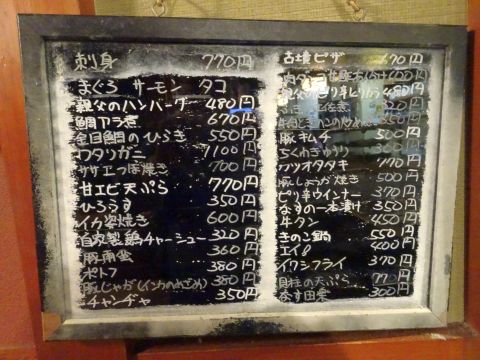 刺身 770円
まぐろ サーモン タコ
親父のハンバーグ 480円
鯛アラ煮 670円
金目鯛のひらき 550円
ワタリガニ 1100円
サザエつぼ焼き 700円
甘エビ天ぷら 770円
ひろうす 350円
イカ姿焼き 600円
自家製鶏チャーシュー 320円
豚角煮 360円
ポトフ 380円
豚じゃが(インカのめざめ) 380円
チャンヂャ 350円
古墳ピザ 670円
480円
豚キムチ 500円
ちくわきゅうり 300円
カツオタタキ 770円
豚しょうが焼き 500円
ピリ辛ウインナー 370円
なすの一本漬け 350円
牛タン 450円
きのこ鍋 550円
エイヒ 400円
イワシフライ 370円
貝柱の天ぷら 770円
なす田楽 300円